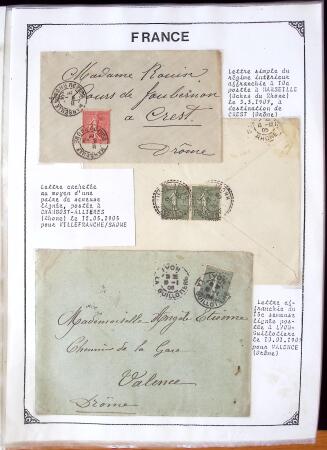 FRANCE
Lettre simple du
régime intérieur
affranchie à 10c
postée à MARSEILLE
(Bches du Rhône)
le 3.3.1907, à
destination de
CREST (Drôme)
Madame Rouin
Cours de Joubernon
à Crest
Drôme
Lettre cachetée
au moyen d'une
paire de semeuse
lignée, postée à
CHAMBOST-ALLIERES
(Rhône) le 15.05.1905
pour VILLEFRANCHE/SAONE
RHONE
Lettre af-
franchie du
15c semeuse
lignée pos-
tée à LYON-
Guillotière
pour VALENCE
(Drôme)
LYON
LA GUILLOTIERE
Mademoiselle Angèle Etienne
Chemin de la Gare
Valence
Drôme